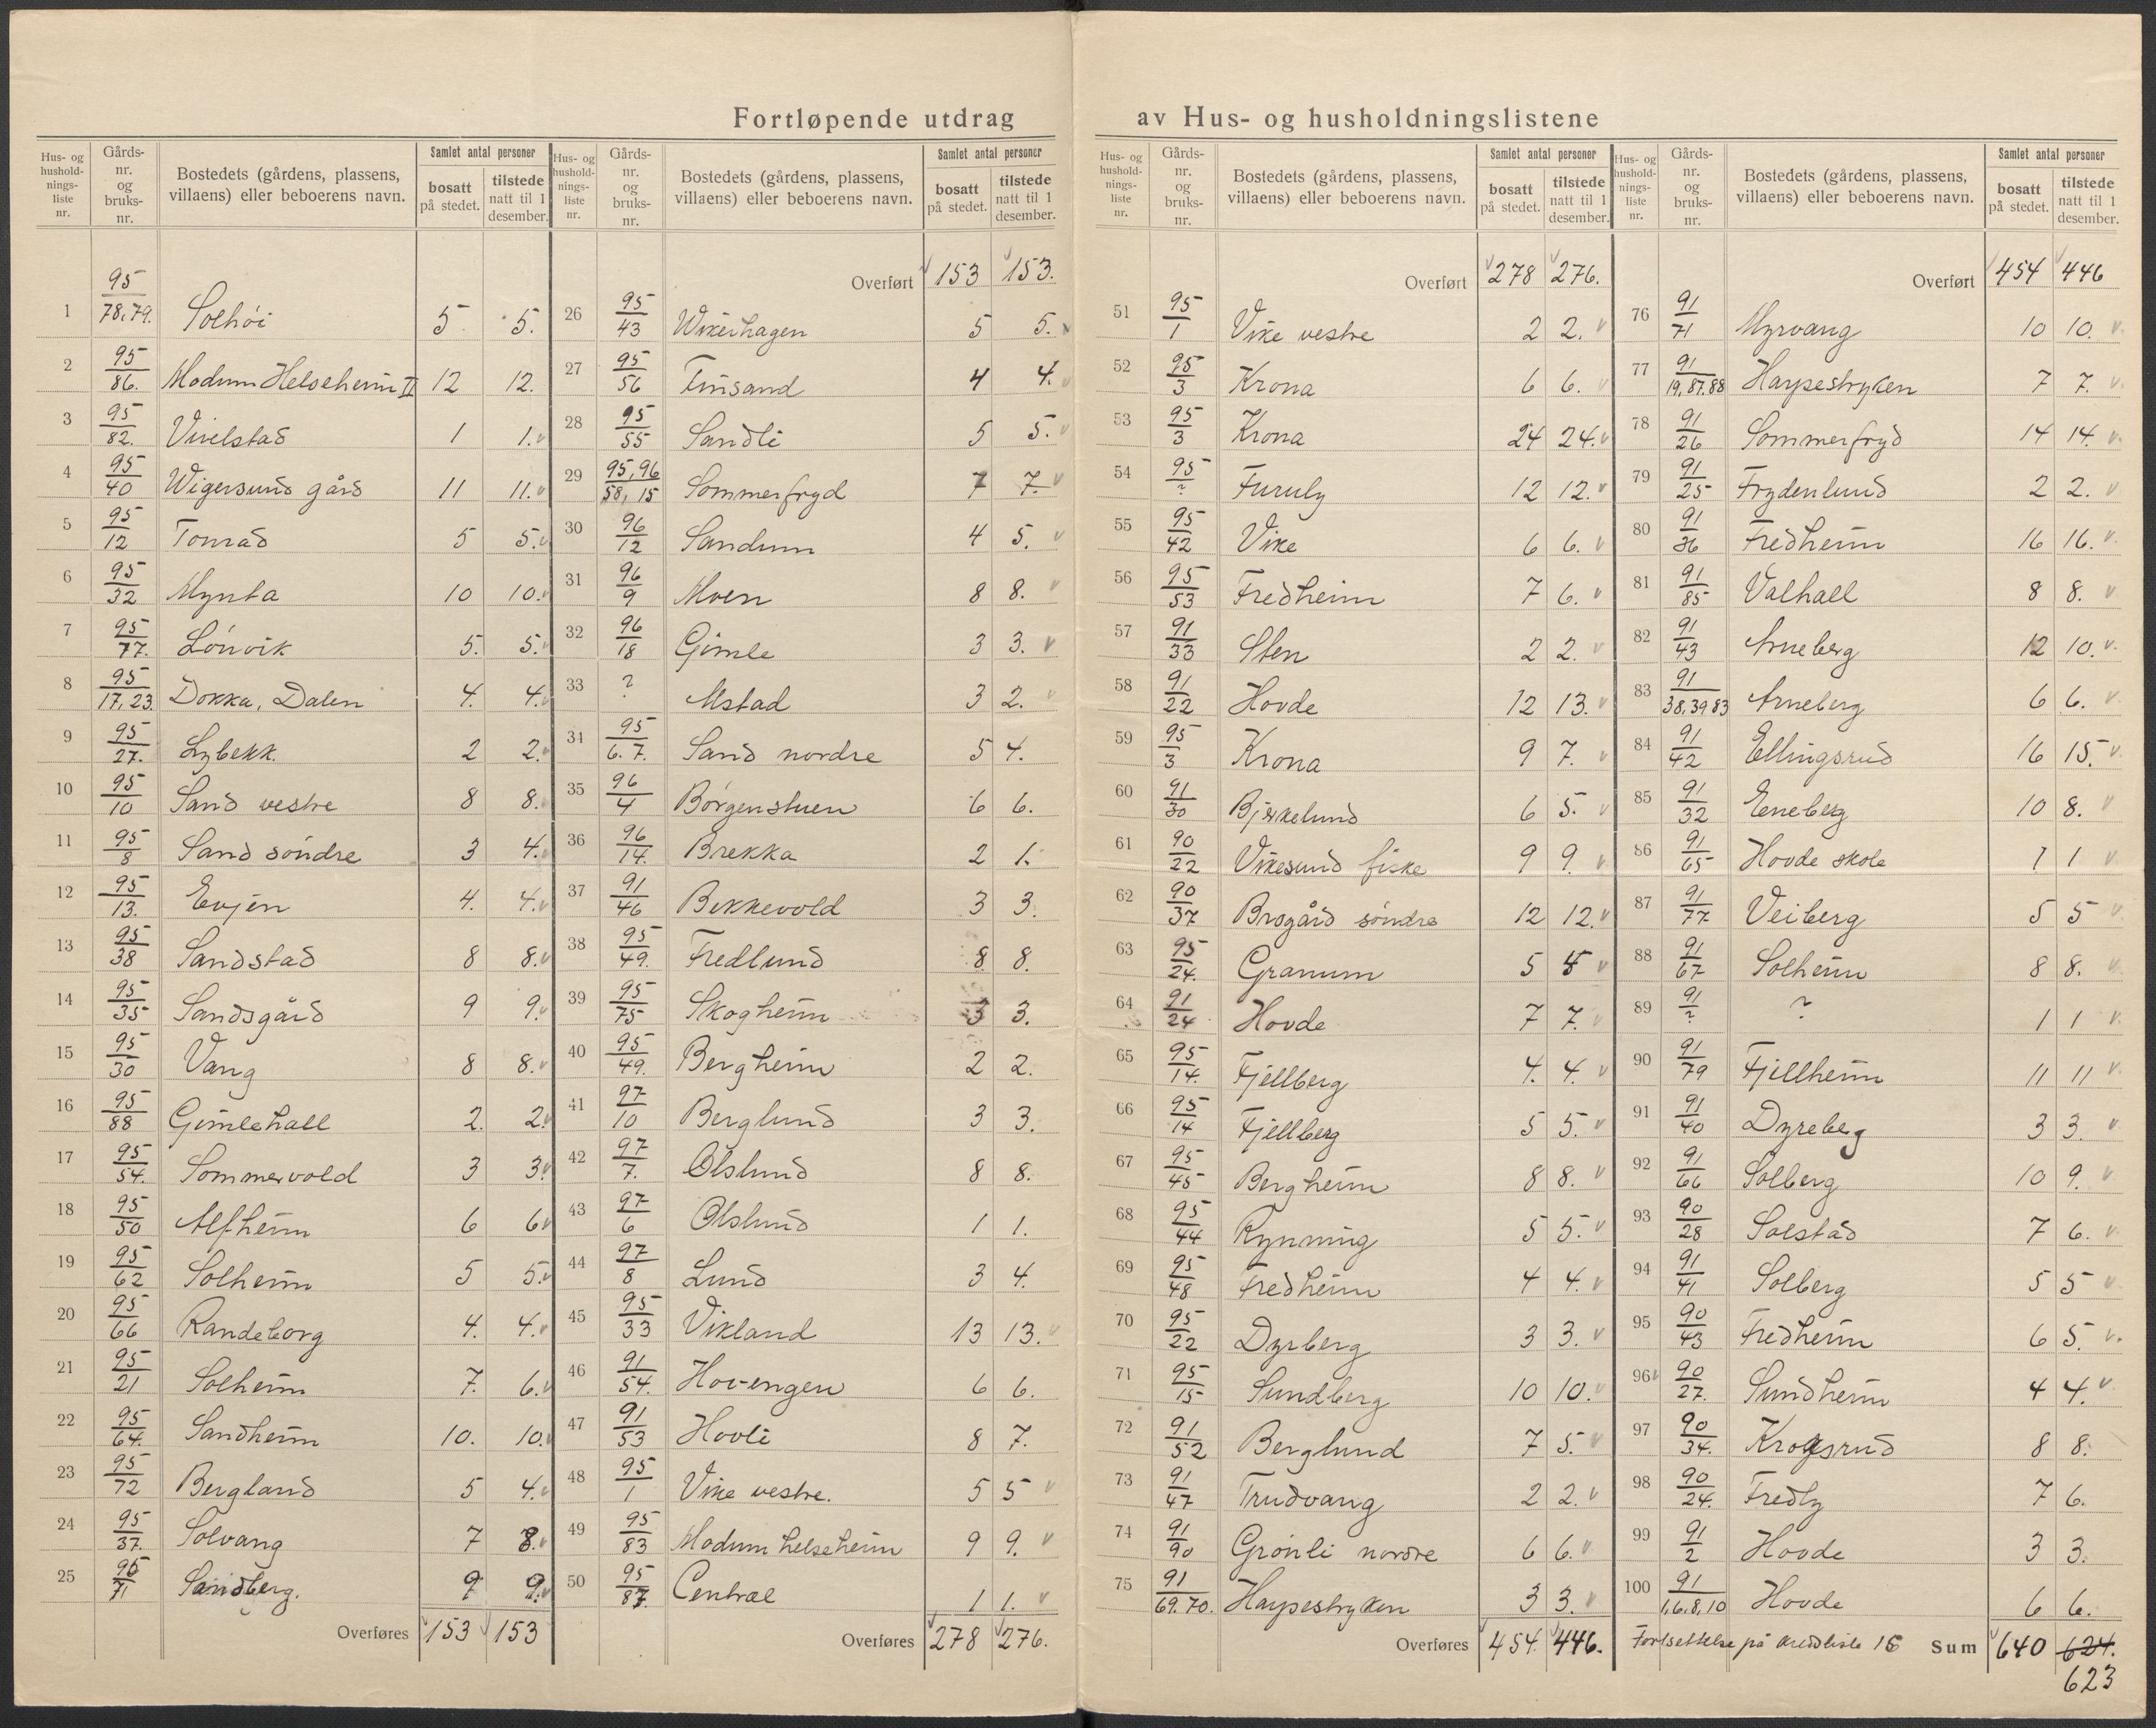 Fortløpende utdrag av Hus- og husholdningslistene
Hus- og hushold-nings-liste nr. Gårds-nr. og bruks-nr. Bostedets (gårdens, plassens, villaens) eller beboerens navn. Samlet antal personer bosatt på stedet. tilstede natt til 1 desember.
1 95/78,79. Solhöi 5 5.
2 95/86. Modum Helseheim II 12 12.
3 95/82. Vivelstad 1 1.
4 95/40 Wigersund gård 11 11.
5 95/12 Tomad 5 5.
6 95/32 Mynta 10 10.
7 95/77. Lönvik 5. 5.
8 95/17,23. Dokka, Dalen 4. 4.
9 95/27. Lybekk. 2 2.
10 95/10 Sand vestre 8 8.
11 95/8 Sand söndre 3 4.
12 95/13. Evjen 4. 4.
13 95/38 Sandstad 8 8.
14 95/35 Sandsgård 9 9.
15 95/30 Vang 8 8.
16 95/88 Gimlehall 2. 2.
17 95/54. Sommervold 3 3.
18 95/50 Alfheim 6 6
19 95/62 Solheim 5 5.
20 95/66 Randeborg 4. 4.
21 95/21 Solheim 7. 6.
22 95/64. Sandheim 10. 10.
23 95/72 Bergland 5 4.
24 95/37. Solvang 7 8.
25 95/71 Sandberg. 9 9.
Overføres 153 153
Hus- og hushold-nings-liste nr. Gårds-nr. og bruks-nr. Bostedets (gårdens, plassens, villaens) eller beboerens navn. Samlet antal personer bosatt på stedet. tilstede natt til 1 desember.
Overført 153 153.
26 95/43 Wikerhagen 5 5.
27 95/56 Finsand 4 4.
28 95/55 Sandli 5 5.
29 95,96/58, 15 Sommerfryd 7 7.
30 96/12 Sandum 4 5.
31 96/9 Moen 8 8.
32 96/18 Gimle 3 3.
33 ? Alstad 3 2.
34 95/6. 7. Sand nordre 5 4.
35 96/4 Börgenstuen 6 6.
36 96/14. Brekka 2 1.
37 91/46 Bekkevold 3 3.
38 95/49. Fredlund 8 8.
39 95/75 Skogheim 3 3.
40 95/49. Bergheim 2 2.
41 97/10 Berglund 3 3.
42 97/7. Olslund 8 8.
43 97/6 Olslund 1 1.
44 97/8 Lund 3 4.
45 95/33 Vikland 13 13.
46 91/54. Hovengen 6 6.
47 91/53 Hovli 8 7.
48 95/1 Vike vestre. 5 5
49 95/83 Modum helseheim 9 9.
50 95/87. Central 1 1.
Overføres 278 276.
Hus- og hushold-nings-liste nr. Gårds-nr. og bruks-nr. Bostedets (gårdens, plassens, villaens) eller beboerens navn. Samlet antal personer bosatt på stedet. tilstede natt til 1 desember.
Overført 278 276.
51 95/1 Vike vestre 2 2.
52 95/3 Krona 6 6.
53 95/3 Krona 24 24.
54 95/? Furuly 12 12.
55 95/42 Vike 6 6.
56 95/53 Fredheim 7 6.
57 91/33 Sten 2 2.
58 91/22 Hovde 12 13.
59 95/3 Krona 9 7.
60 91/30 Bjerkelund 6 5.
61 90/22 Vikesund fiske 9 9.
62 90/37 Brogård söndre 12 12.
63 95/24. Granum 5 5
64 91/24 Hovde 7 7.
65 95/14. Fjellberg 4. 4.
66 95/14 Fjellberg 5 5.
67 95/45 Bergheim 8 8.
68 95/44 Rynning 5 5.
69 95/48 Fredheim 4 4.
70 95/22 Dyrberg 3 3.
71 95/15 Sundberg 10 10.
72 91/52 Berglund 7 5.
73 91/47 Trudvang 2 2.
74 91/90 Grönli nordre 6 6.
75 91/69. 70. Harpestryken 3 3.
Overføres 454. 446.
Hus- og hushold-nings-liste nr. Gårds-nr. og bruks-nr. Bostedets (gårdens, plassens, villaens) eller beboerens navn. Samlet antal personer bosatt på stedet. tilstede natt til 1 desember.
Overført 454 446
76 91/71 Myrvang 10 10.
77 91/19,87.88 Harpestryken 7 7.
78 91/26 Sommerfryd 14 14.
79 91/25 Frydenlund 2 2.
80 91/36 Fredheim 16 16.
81 91/85 Valhall 8 8.
82 91/43 Arneberg 12 10.
83 91/38,39 83 Arneberg 6 6.
84 91/42 Ellingsrud 16 15.
85 91/32 Eneberg 10 8.
86 91/65 Hovde skole 1 1
87 91/77 Veiberg 5 5
88 91/67 Solheim 8 8.
89 91/? ? 1 1
90 91/79 Fjellheim 11 11
91 91/40 Dyreberg 3 3.
92 91/66 Solberg 10 9.
93 90/28 Solstad 7 6.
94 91/41 Solberg 5 5
95 90/43 Fredheim 6 5.
96 90/27. Sundheim 4 4.
97 90/34. Krogsrud 8 8.
98 90/24. Fredly 7 6.
99 91/2 Hovde 3 3.
100 91/1,6.8,10 Hovde 6 6.
Fortsettelse på kredsliste 15 Sum 640 624.
623